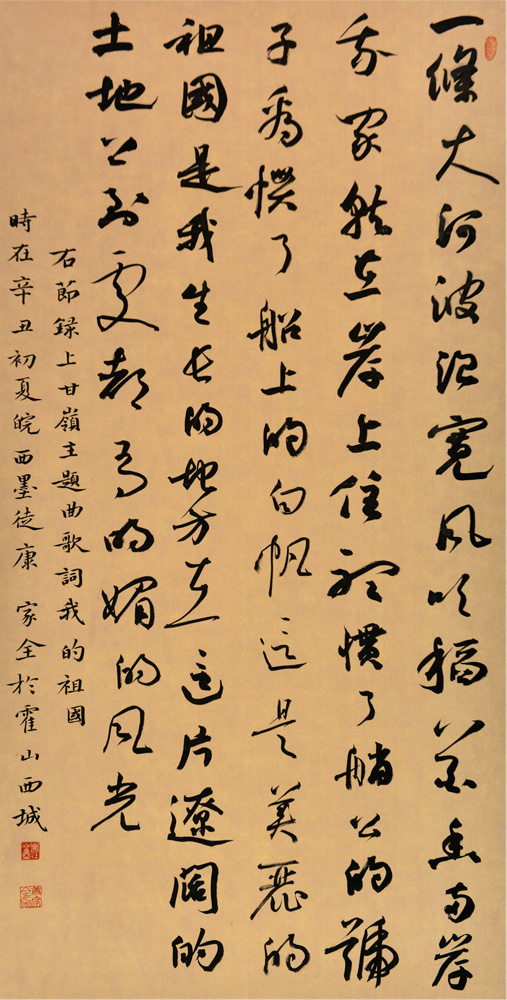 一條大河波浪寬風吹稻花香兩岸
我家就在岸上住聽慣了艄公的號
子看慣了船上的白帆這是美麗的
祖國是我生長的地方在這片遼闊的
土地上到處都有明媚的風光
右節録上甘嶺主題曲歌詞我的祖國
時在辛丑初夏皖西墨徒康家全於霍山西城